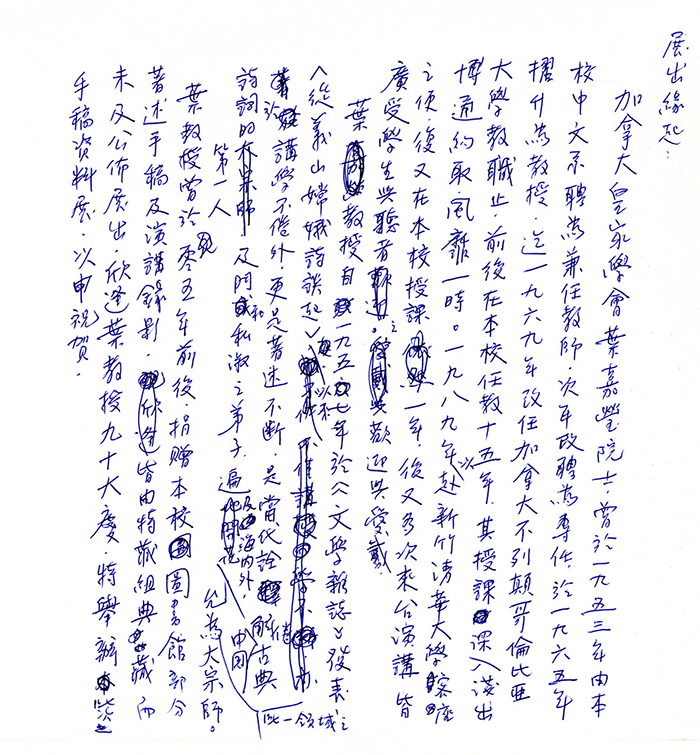 展出緣起：
加拿大皇家學會葉嘉瑩院士，曾於一九五三年由本
校中文系聘為兼任教師，次年改聘為專任，於一九六五年
擢升為教授，迄一九六九年改任加拿大不列顛哥倫比亞
大學教職止，前後在本校任教十五年，其授課深入淺出
博通約取風靡一時。一九八九年以赴新竹清華大學客座
之便，後又在本校授課一年，後又多次來台演講，皆
廣受學生與聽者之歡迎與愛戴。
葉教授自一九五七年於《文學雜誌》發表
〈從義山嫦娥詩談起〉以來
於講學不倦外，更是著述不斷，是當代詮解古典
詩詞的第一人及門和私淑之弟子，遍及海內外，
允為中國此一領域之大宗師。
葉教授曾於零五年前後捐贈本校圖書館部分
著述手稿及演講錄影，皆由特藏組典藏而
未及公佈展出，欣逢葉教授九十大慶，特舉辦此次
手稿資料展，以申祝賀。